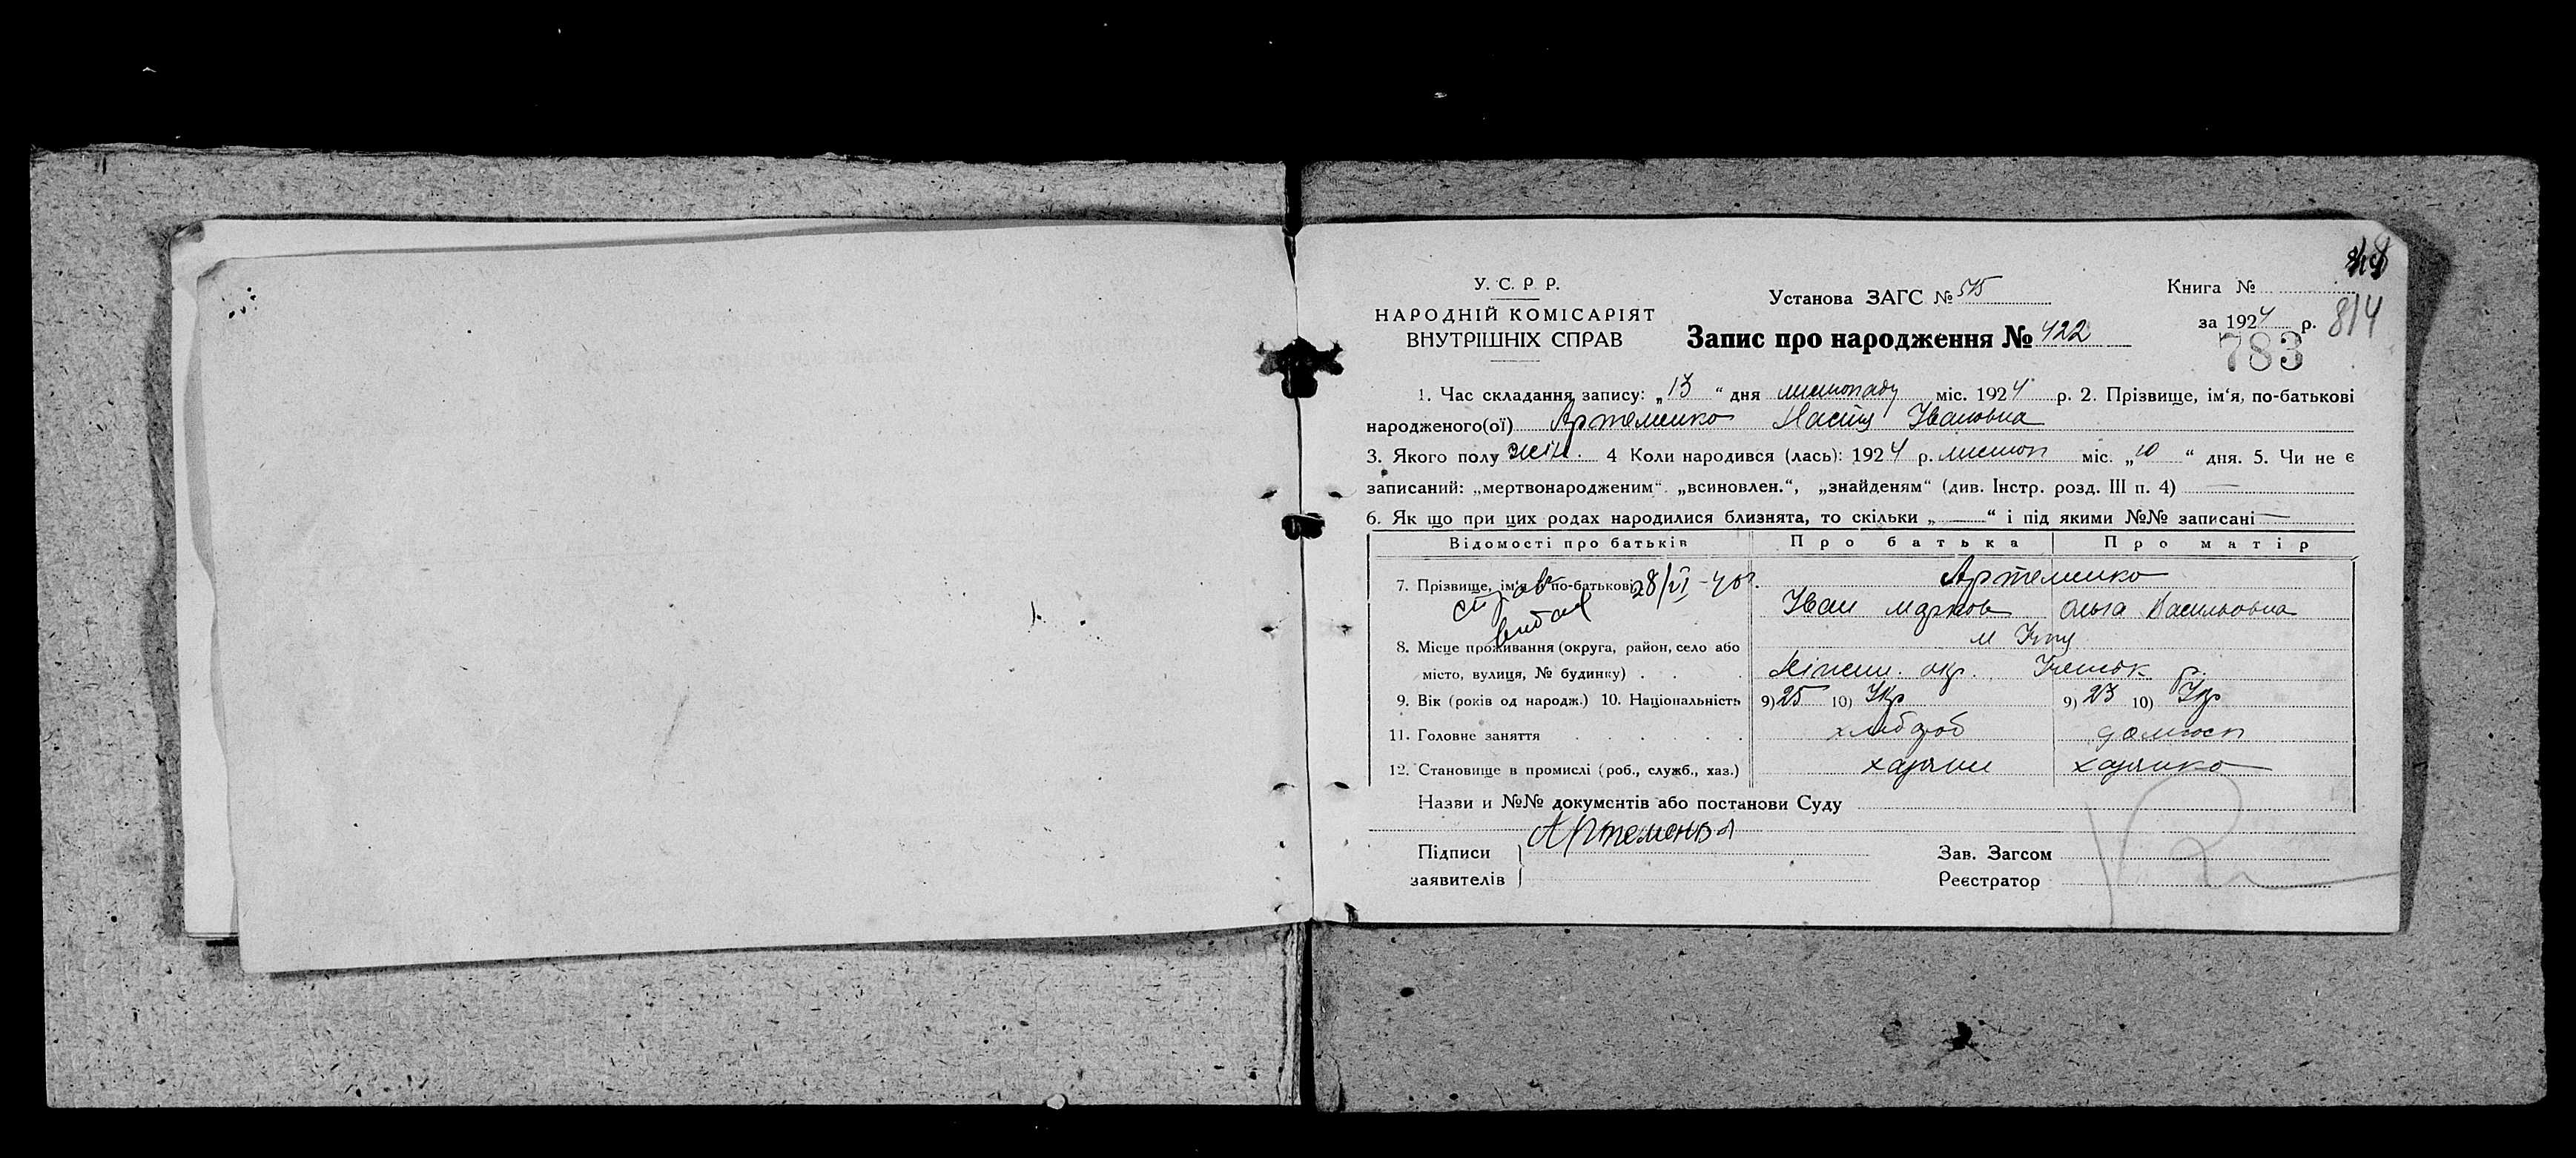 У. С. Р. Р.
НАРОДНІЙ КОМІСАРІЯТ
ВНУТРІШНІХ СПРАВ
Установа ЗАГС № 515
Запис про народження № 422
Книга №
за 1924 р.
814
783
1. Час складання запису: „13“ дня листопаду міс. 1924 р. 2. Прізвище, ім'я, по-батькові
народженого(ої) Артеменко Настя Івановна
3. Якого полу жін. 4 Коли народився (лась): 1924 р. листоп міс. „10“ дня. 5. Чи не є
записаний: „мертвонародженим“. „всиновлен.“, „знайденям“ (див. Інстр. розд. III п. 4) —
6. Як що при цих родах народилися близнята, то скільки „—“ і під якими №№ записані —
Відомості про батьків Про батька Про матір
7. Прізвище, ім'я, по-батькові Артеменко
28/VI-40г.
Іван Марков Ольга Васильовна
8. Місце проживання (округа, район, село або
місто, вулиця, № будинку) Ніжин. окр.
9. Вік (років од народж.) 10. Національність 9) 25 10) Укр 9) 23 10) Укр
11. Головне заняття хлібороб домгосп
12. Становище в промислі (роб., служб., хаз.) хазяин хазяйко
Назви и №№ документів або постанови Суду
Підписи
заявителів
Зав. Загсом
Реєстратор